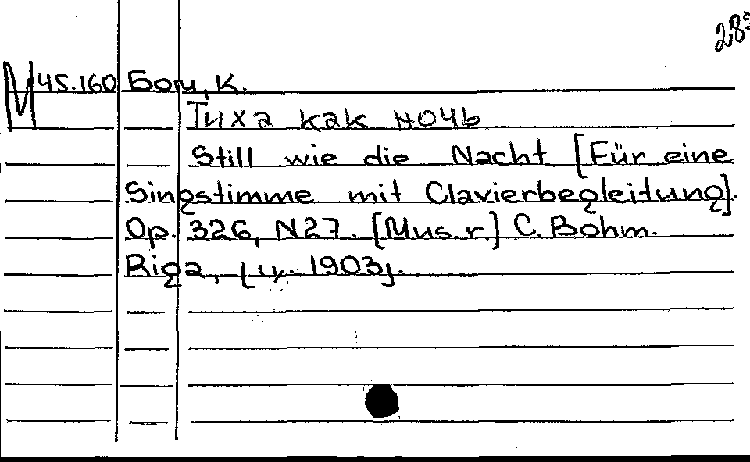 283
М 45.160 Бом, К.
Тиха как ночь
Still wie die Nacht [Für eine
Singstimme mit Clavierbegleitung].
Op. 326, N27. [Mus. r.] C. Bohm.
Riga, [ц. 1903].